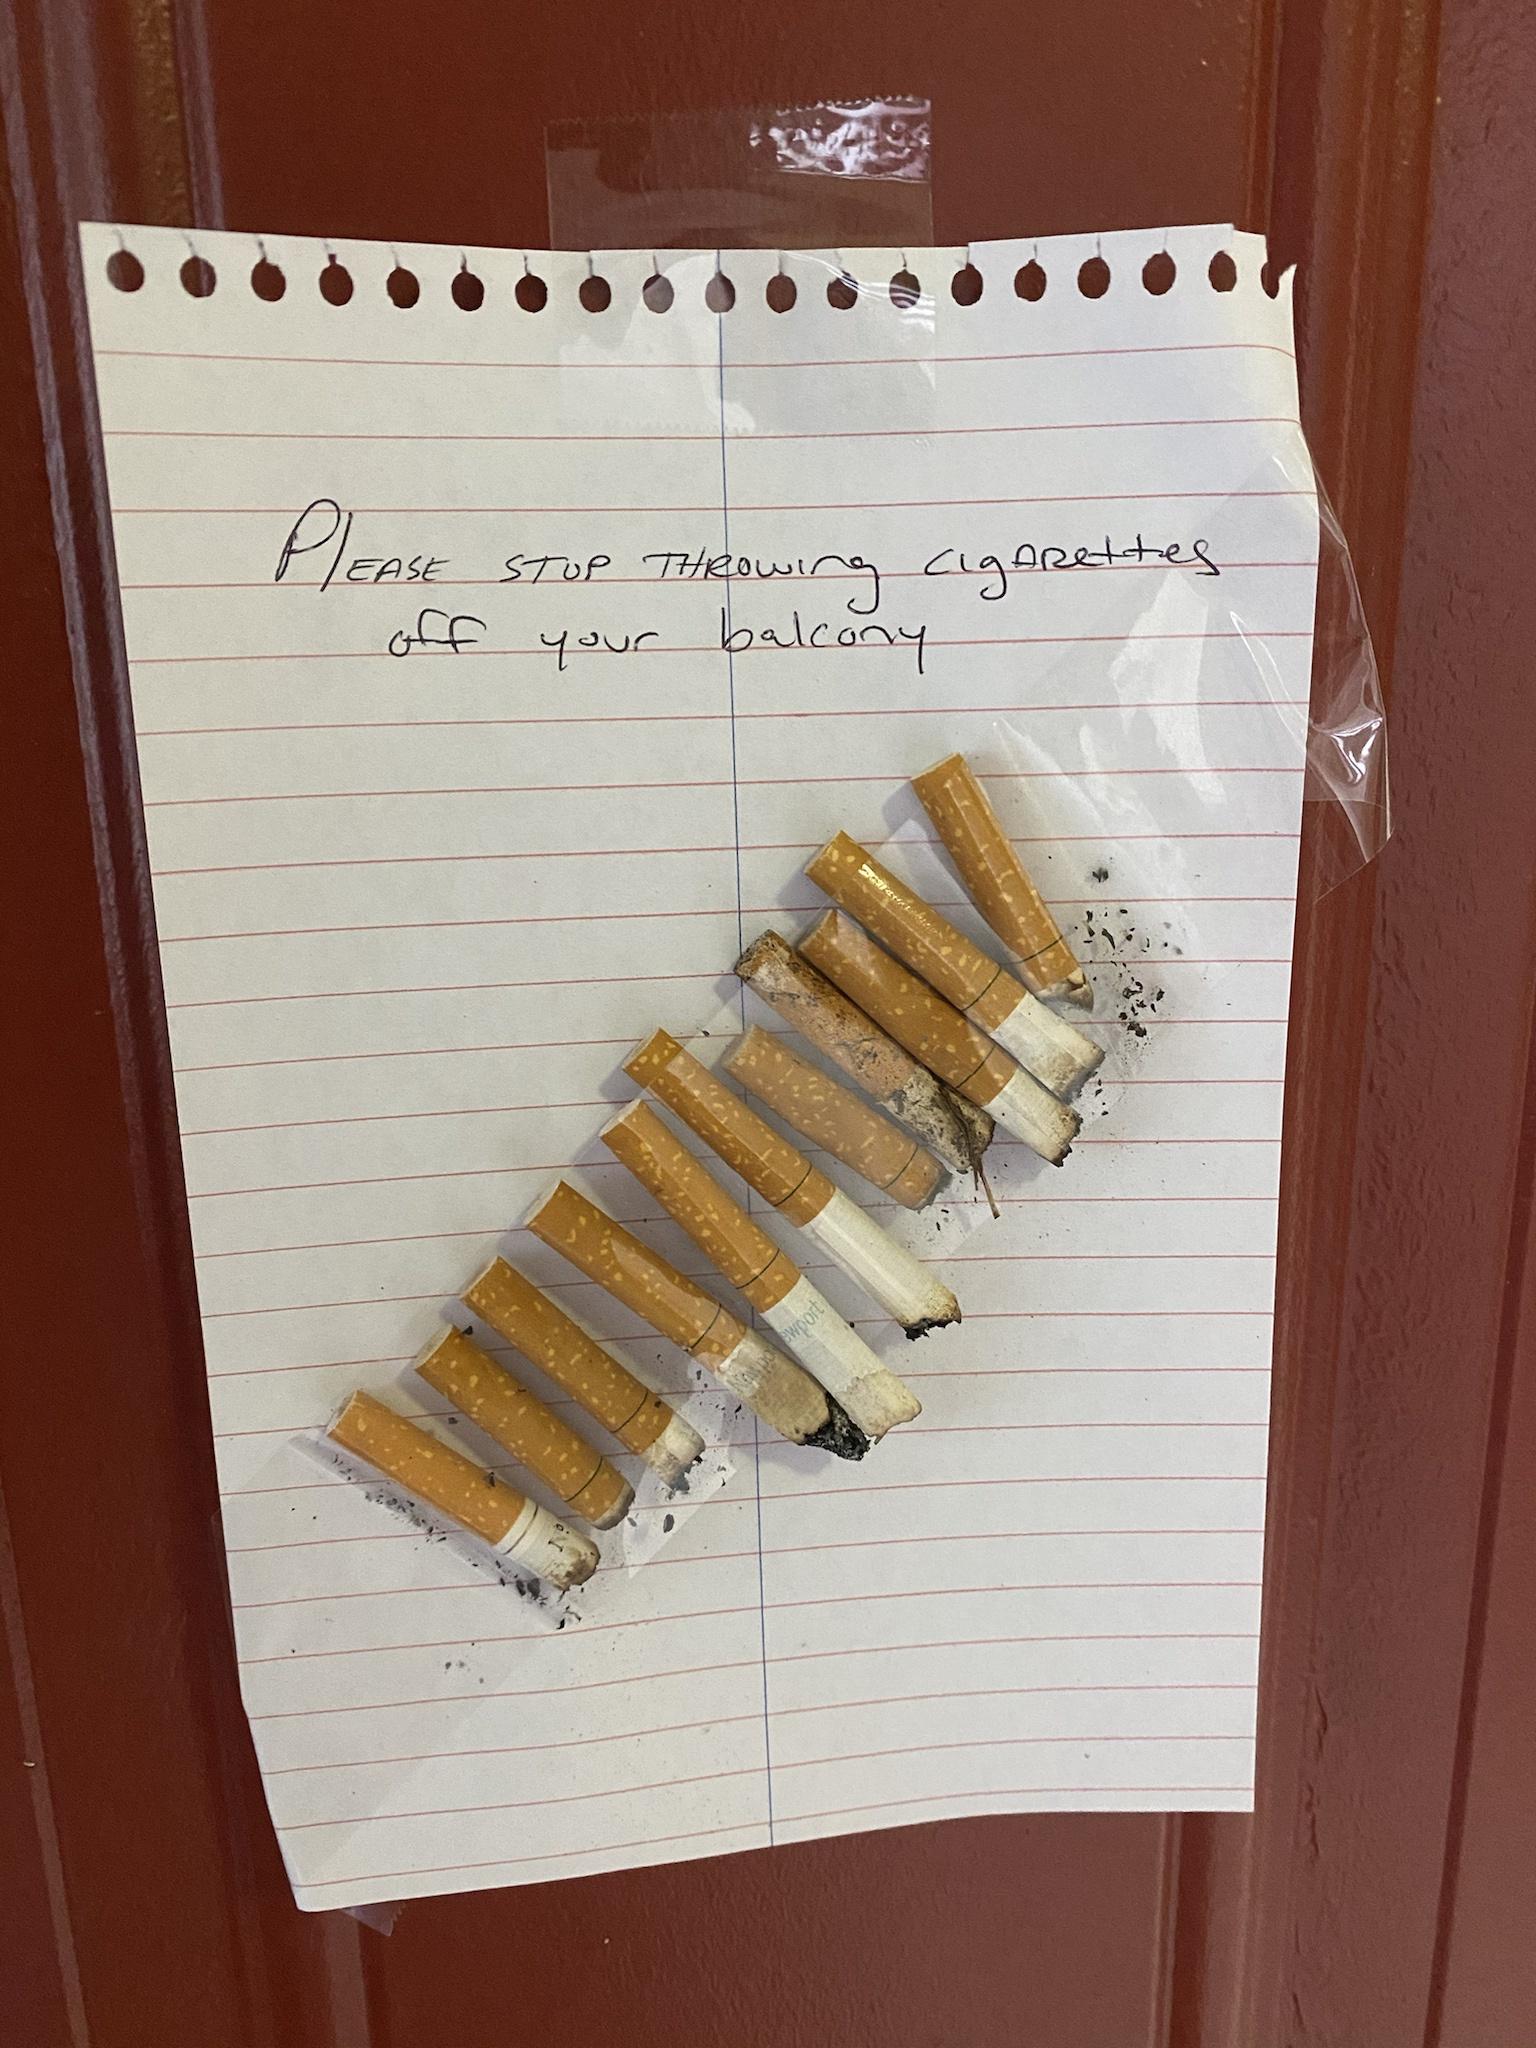 PlEASE STOP THROWing cigARettes
off your balcony
ewport